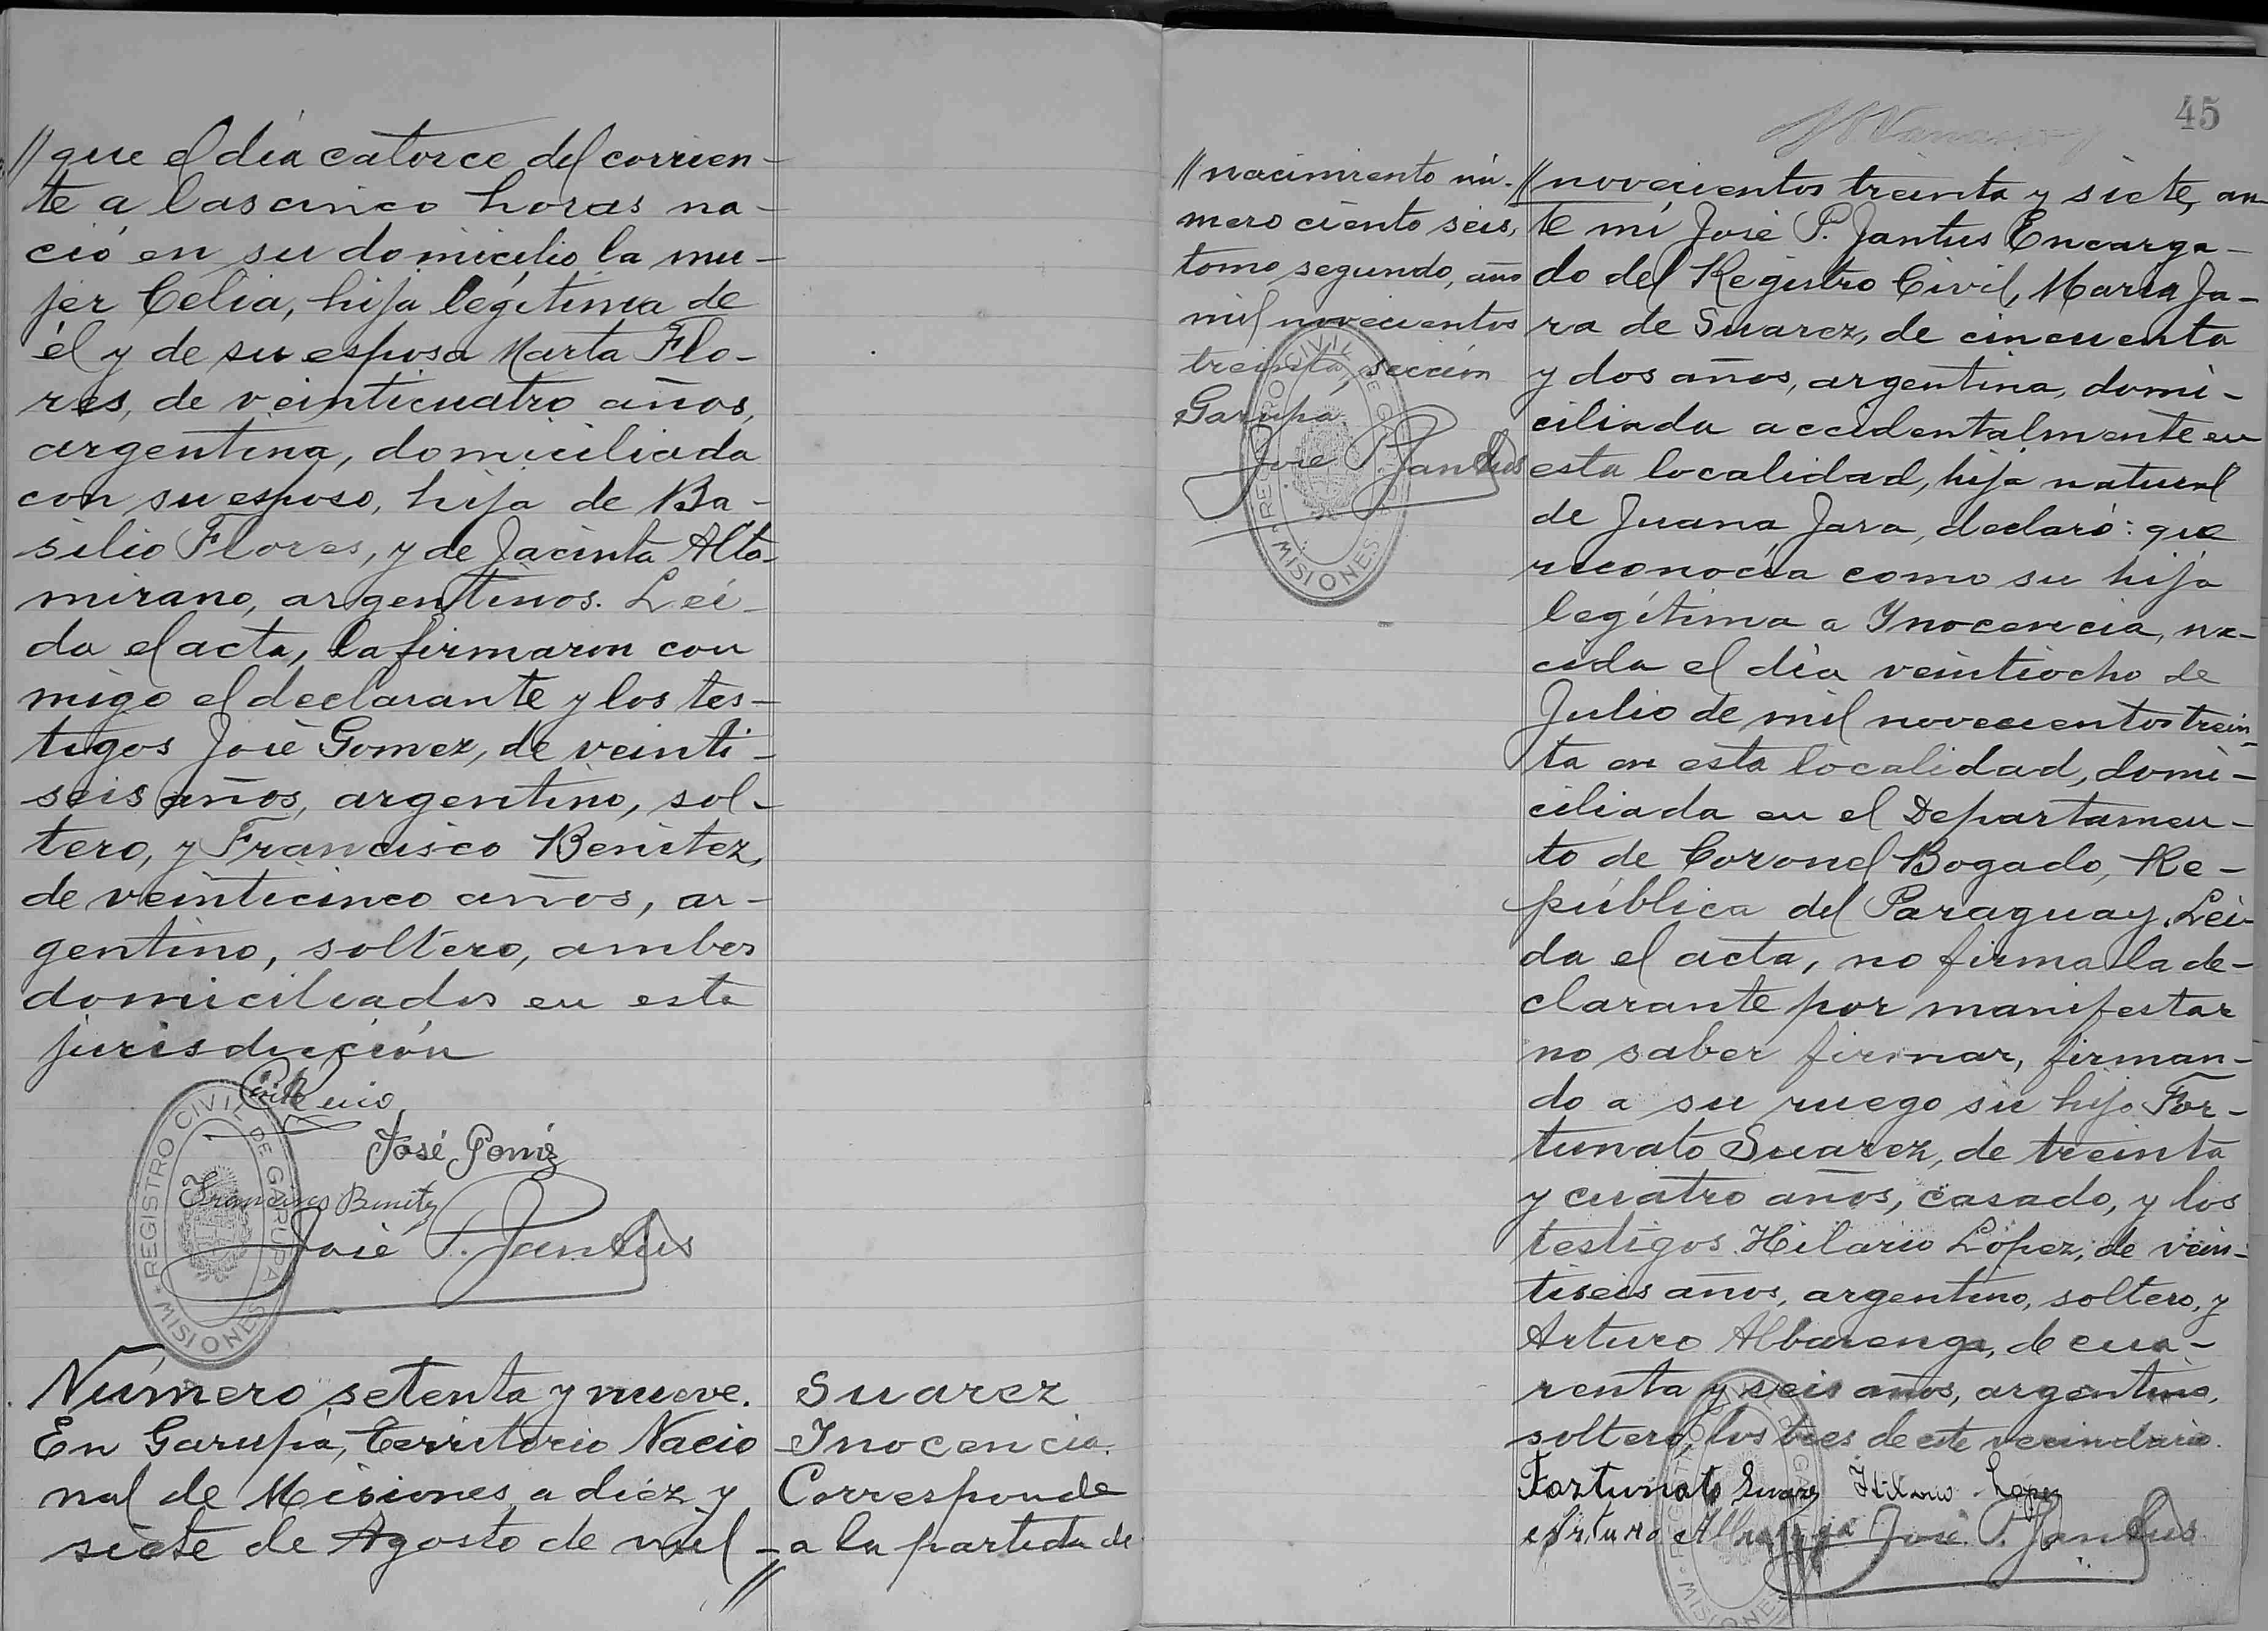 // que el día catorce del corrien-
te a las cinco horas na-
ció en su domicilio la mu-
jer Celia, hija legítima de
él y de su esposa Marta Flo-
res, de veinticuatro años,
argentina, domiciliada
con su esposo, hija de Ba-
silio Flores, y de Jacinta Alta-
mirano, argentinos. Leí-
da el acta, la firmaron con
migo el declarante y los tes-
tigos José Gomez, de veinti-
seis años, argentino, sol-
tero, y Francisco Benitez,
de veinticinco años, ar-
gentino, soltero, ambos
domiciliados en esta
jurisdicción
José Gomez
Francisco Benitez
José P. Jantus
REGISTRO CIVIL DE GARUPA
MISIONES
Número setenta y nueve.
En Garupá, Territorio Nacio
nal de Misiones, a diez y
siete de Agosto de mil -
//
Suarez
Inocencia.
Corresponde
a la partida de
45
// nacimiento nú-
mero ciento seis,
tomo segundo, año
mil novecientos
treinta, sección
Garupá
José P. Jantus
REGISTRO CIVIL DE GARUPA
MISIONES
// novecientos treinta y siete, an-
te mí José P. Jantus Encarga-
do del Registro Civil, Maria Ja-
ra de Suarez, de cincuenta
y dos años, argentina, domi-
ciliada accidentalmente en
esta localidad, hija natural
de Juana Jara, declaró: que
reconocía como su hija
legítima a Ynocencia, na-
cida el día veintiocho de
Julio de mil novecientos trein-
ta en esta localidad, domi-
ciliada en el Departamen-
to de Coronel Bogado, Re-
pública del Paraguay. Leí-
da el acta, no firma la de-
clarante por manifestar
no saber firmar, firman-
do a su ruego su hijo For-
tunato Suarez, de treinta
y cuatro años, casado, y los
testigos Hilario López, de vein-
tiseis años, argentino, soltero, y
Arturo Albarenga, de cua-
renta y seis años, argentino,
soltero, los tres de este vecindario.
Fortunato Suarez Hilario Lopez
Arturo José P. Jantus
MISIONES